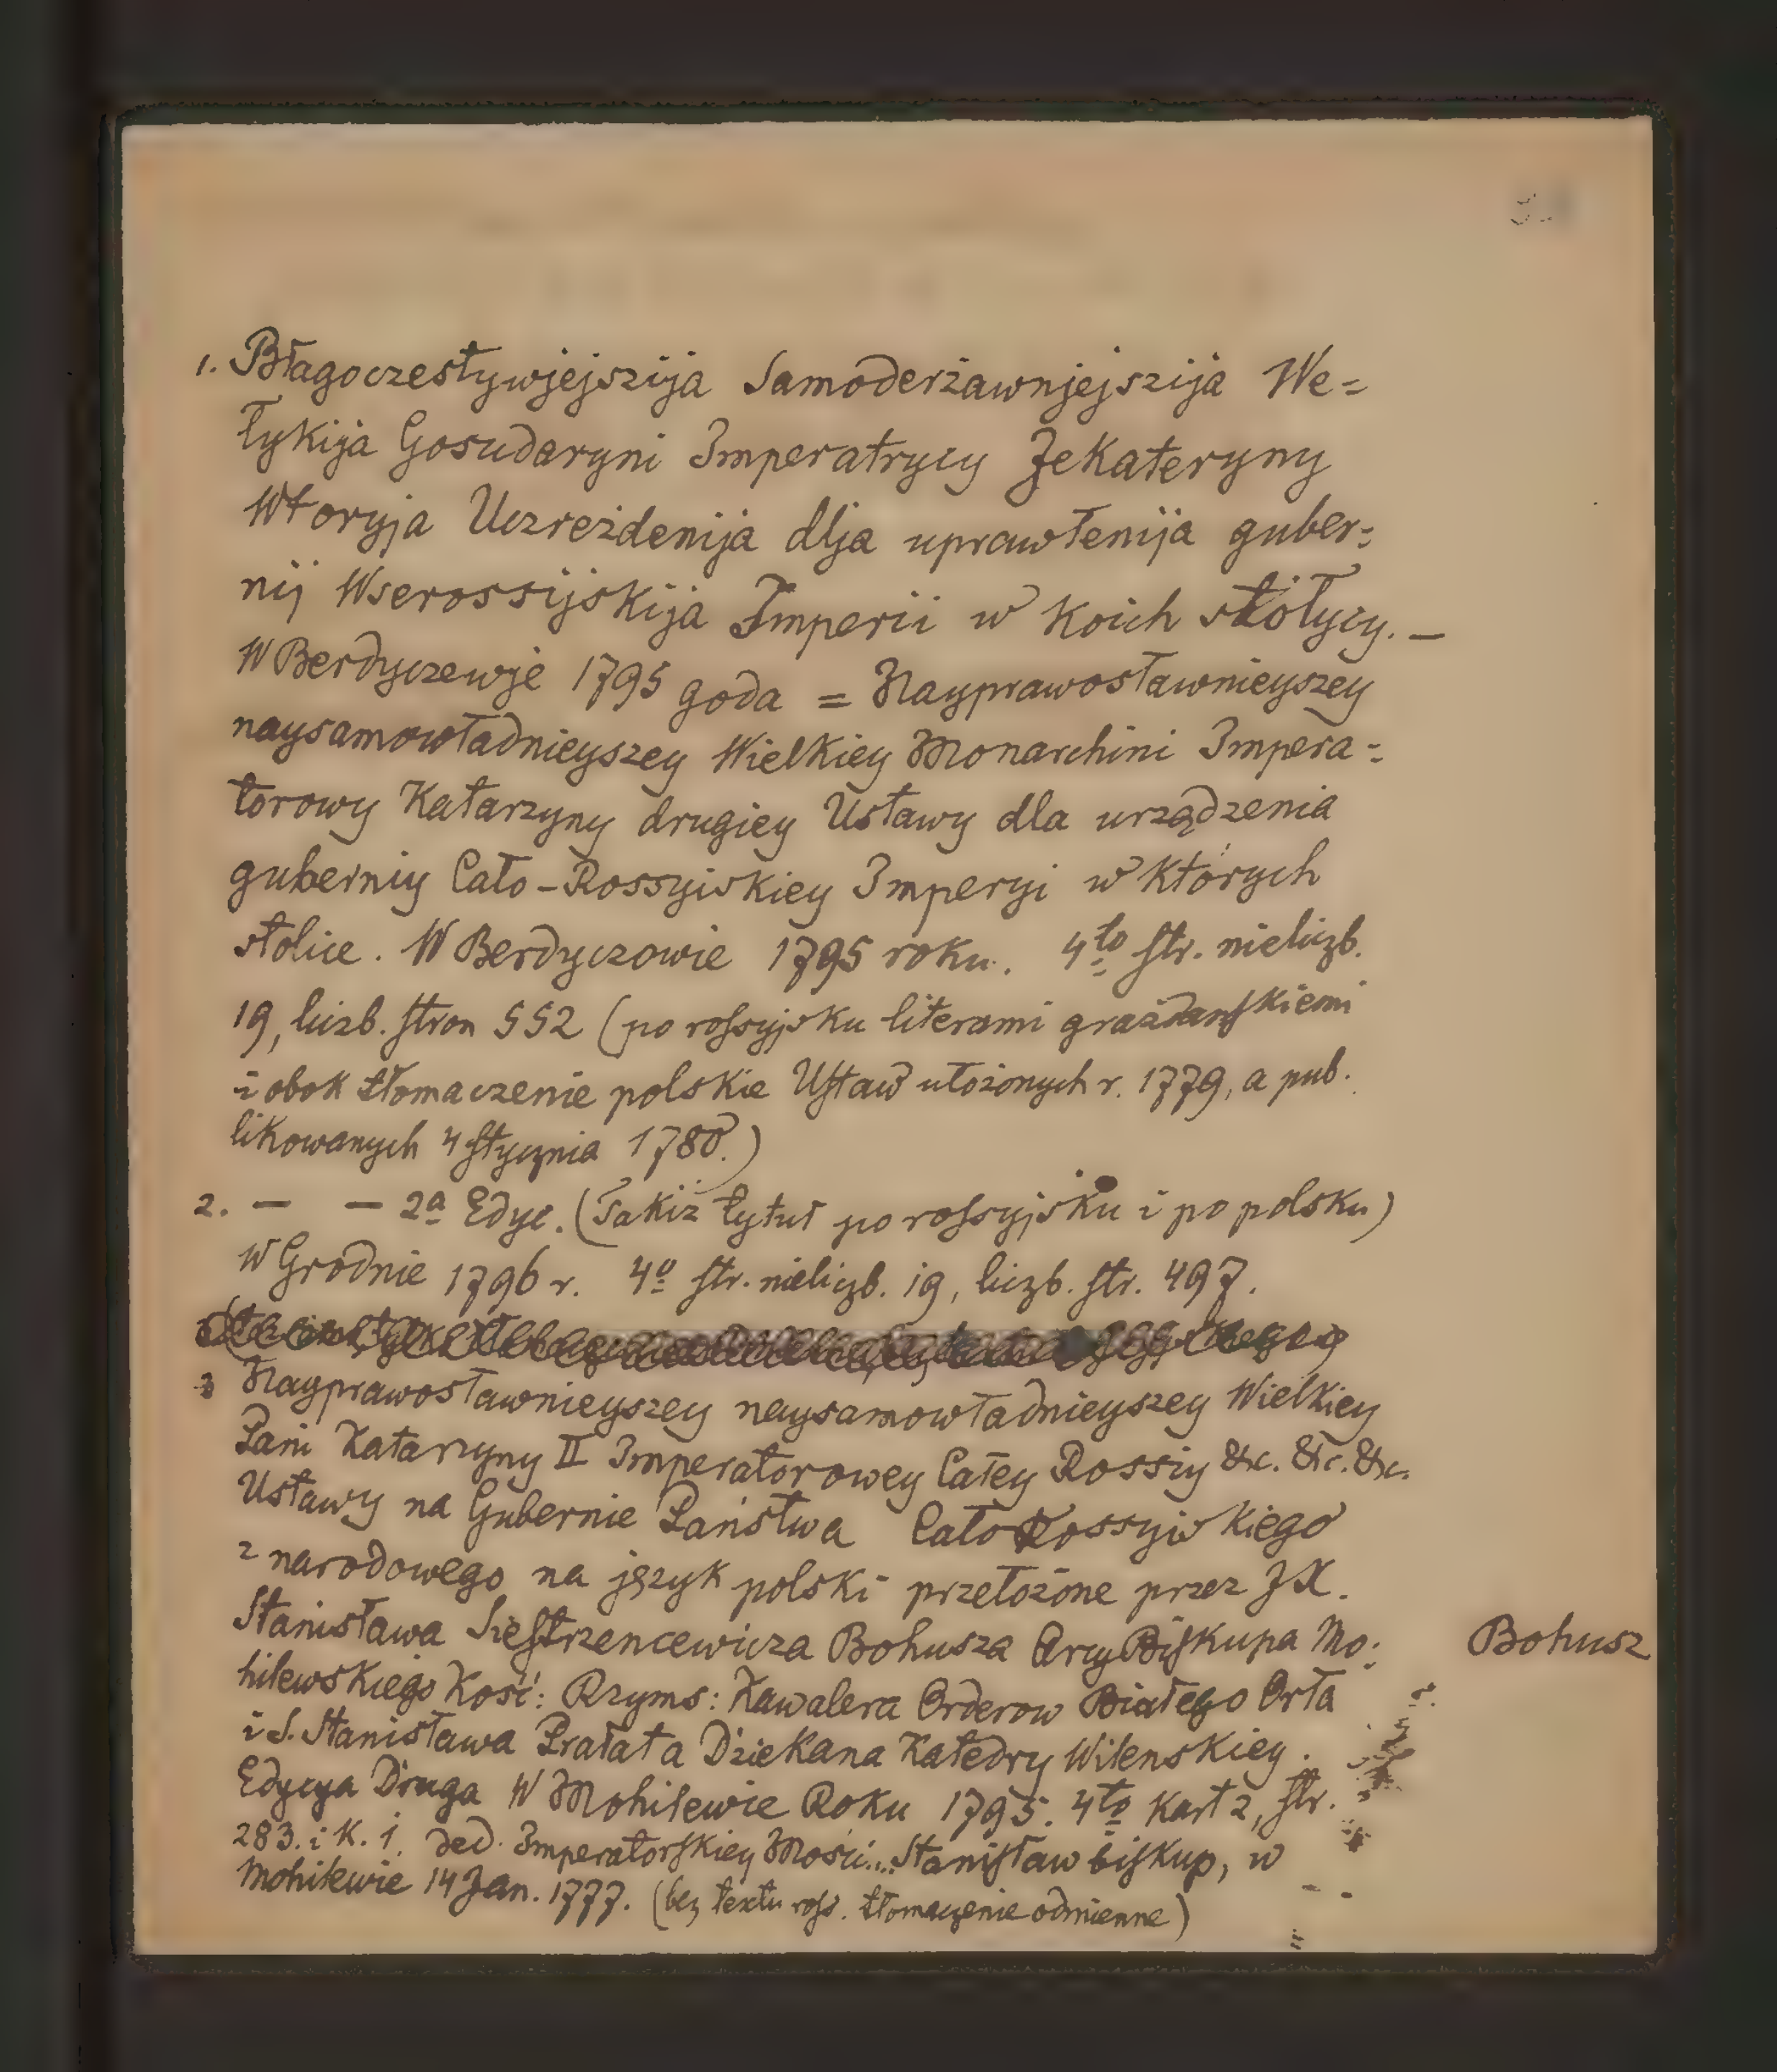 1. Błagoczestywjejszija Samoderżawnjejszija We=
łykija Gosudaryni Imperatrycy Jekateryny
Wtoryja Uczreżdenija dlja uprawłenija guber=
nij Wserossijskija Imperii w koich stołycy. —
W Berdyczewje 1795 goda = Nayprawosławnieyszey
naysamowładnieyszey Wielkiey Monarchini Impera=
torowy Katarzyny drugiey Ustawy dla urządzenia
guberniy Cało-Rossyiskiey Imperyi w których
stolice. W Berdyczowie 1795 roku. 4to str. nieliczb.
19, liczb. stron 552 (po rossyjsku literami grażdanskiemi
i obok tłomaczenie polskie Ustaw ułożonych r. 1779, a pub.
likowanych 4 stycznia 1780.)
2. — — 2a Edyc. (Takiż tytuł po rossyjsku i po polsku)
W Grodnie 1796 r. 4o str. nieliczb. 19, liczb. str. 497.
3 Nayprawosławnieyszey naysamowładnieyszey Wielkiey
Pani Katarzyny II Imperatorowey Całey Rossiy &c. &c. &c.
Ustawy na Gubernie Państwa Cało Rossyiskiego
z narodowego na język polski przełożone przez JX.
Stanisława Siestrzencewicza Bohusza Arcy Biskupa Mo: Bohusz
hilewskiego Kość: Rzyms: Kawalera Orderow Białego Orła
i S. Stanisława Prałata Dziekana Katedry Wilenskiey.
Edycya Druga W Mohilewie Roku 1795. 4to kart 2, str.
283. i k. 1. ded. Imperatorskiey Mości... Stanisław biskup, w
Mohilewie 14 Jan. 1777. (bez textu ross. tłomaczenie odmienne)